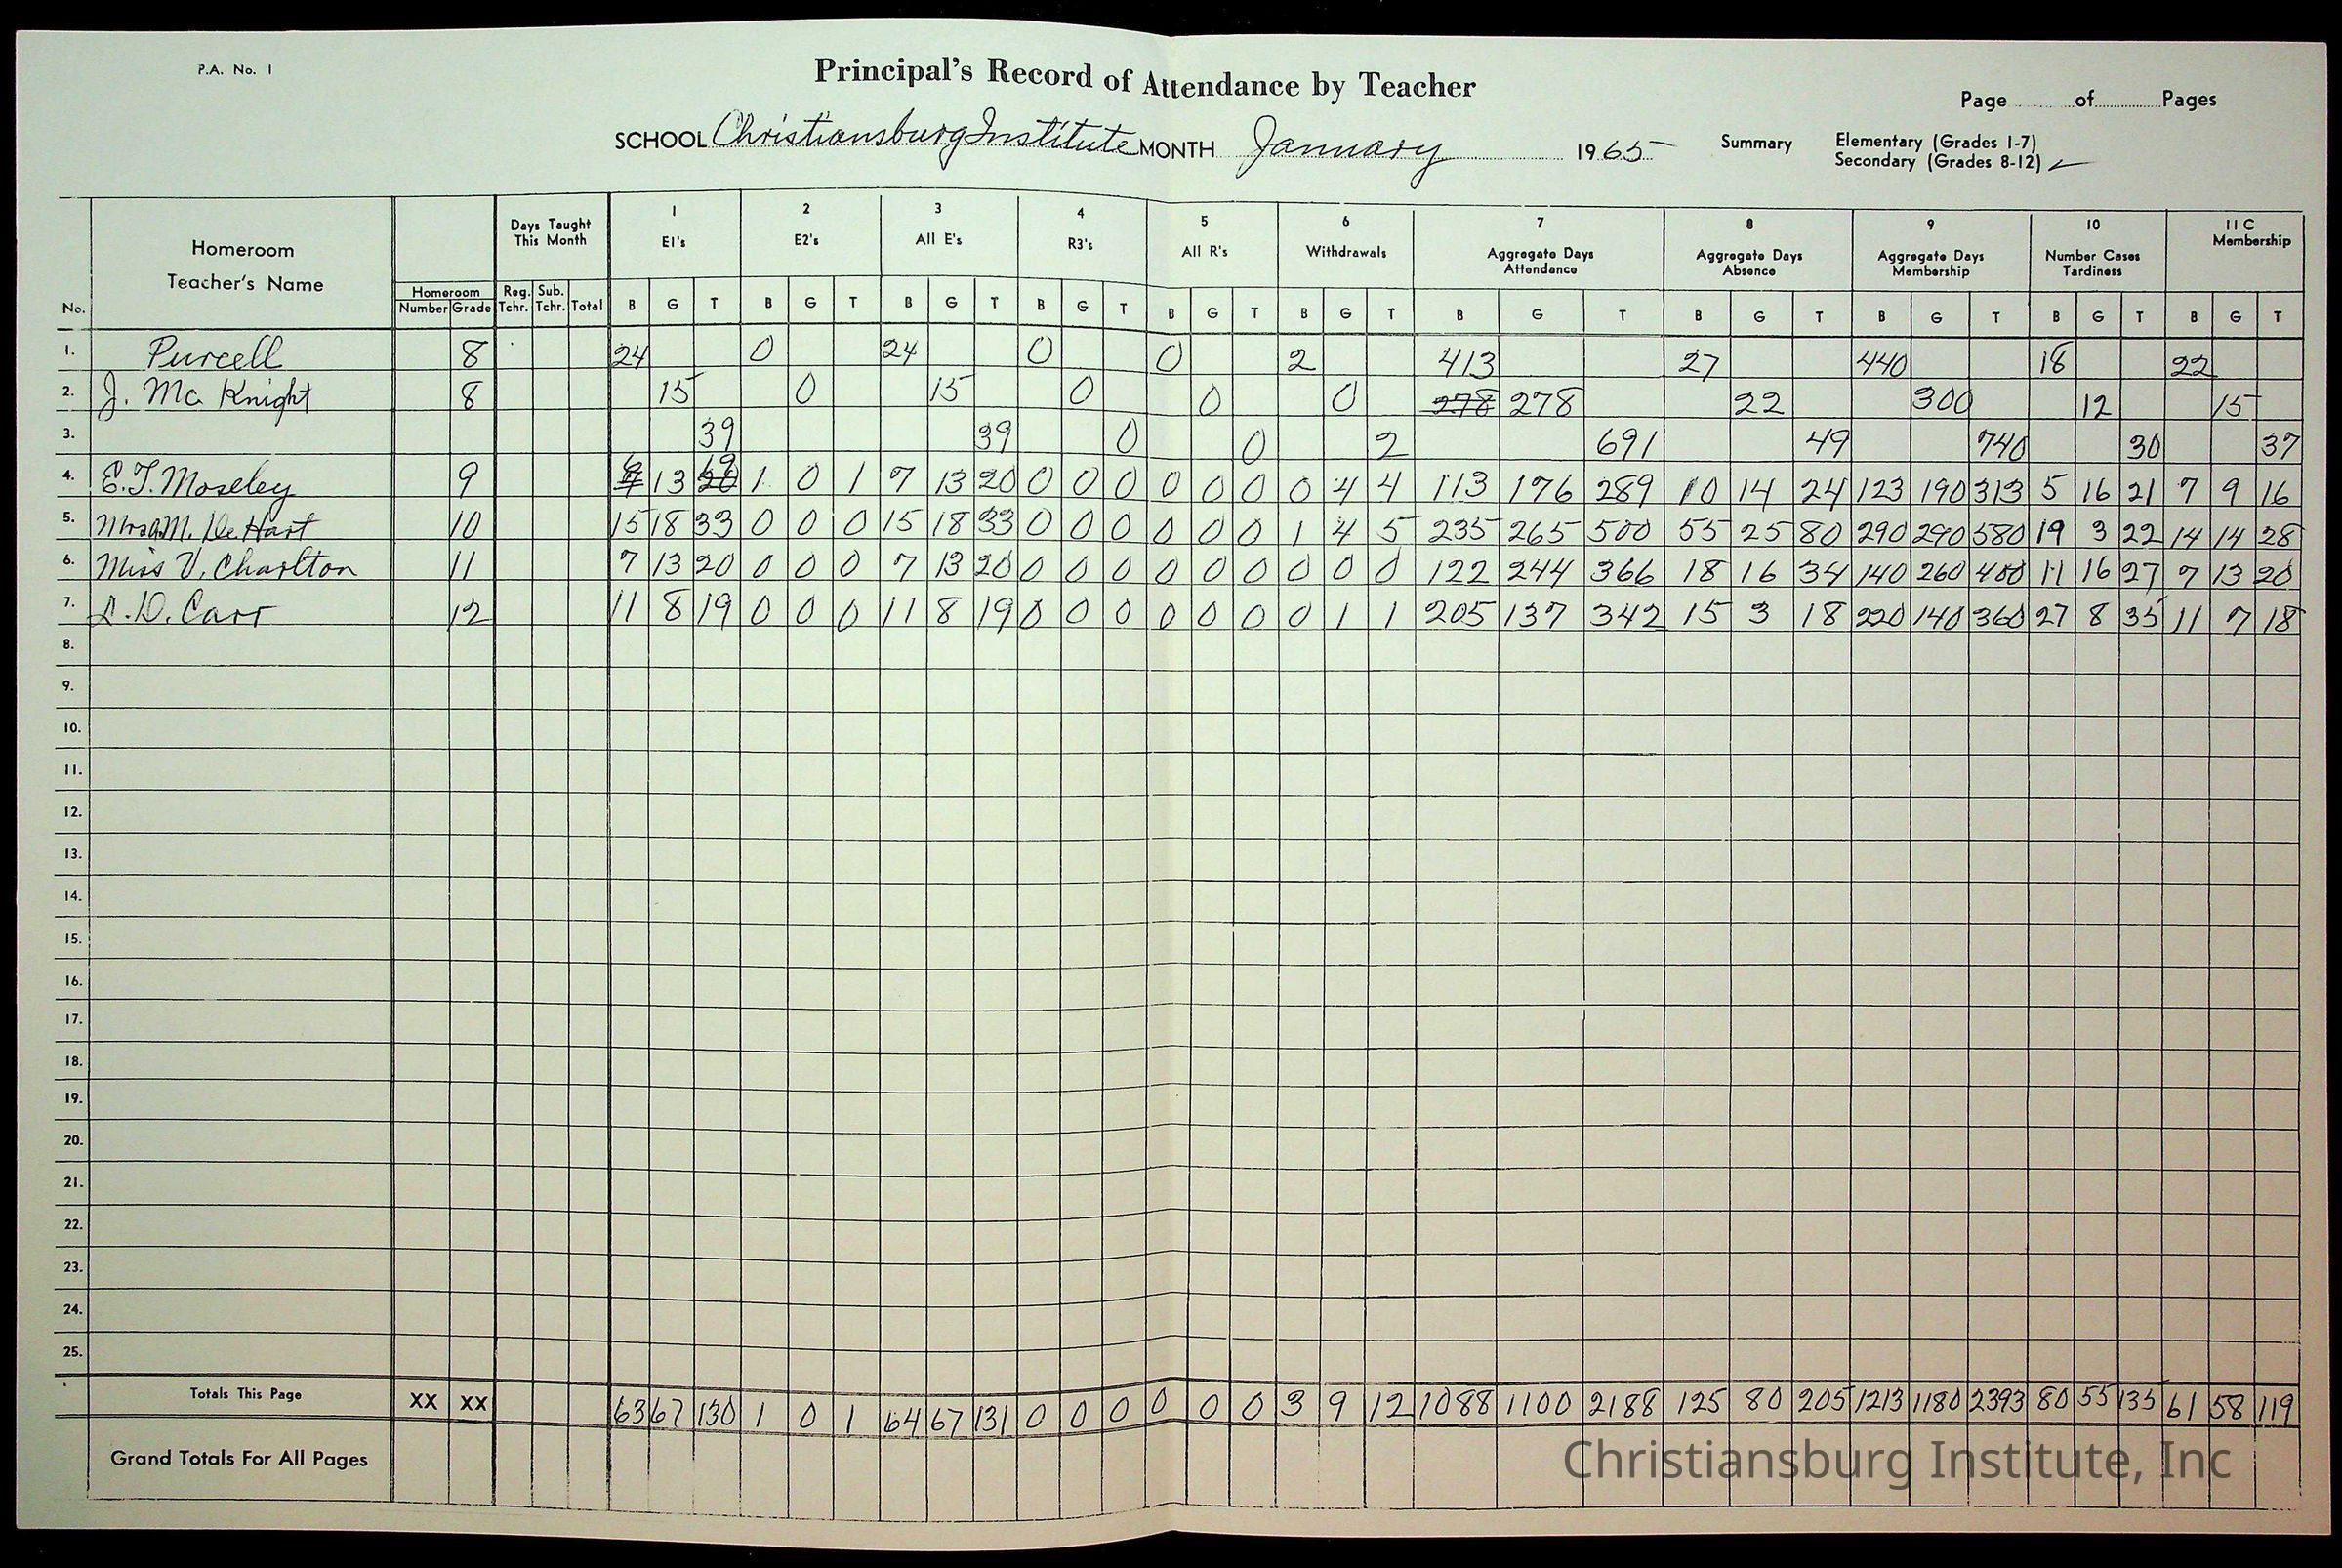 P.A. No. 1
Principal's Record of Attendance by Teacher
Page ........ of ............ Pages
SCHOOL Christiansburg Institute MONTH January 1965 Summary Elementary (Grades 1-7)
Secondary (Grades 8-12) ✓
No. Homeroom Teacher's Name Homeroom Number Grade Days Taught This Month Reg. Tchr. Sub. Tchr. Total 1 E1's 2 E2's 3 All E's 4 R3's 5 All R's 6 Withdrawals 7 Aggregate Days Attendance 8 Aggregate Days Absence 9 Aggregate Days Membership 10 Number Cases Tardiness 11 C Membership
B G T B G T B G T B G T B G T B G T B G T B G T B G T B G T B G T
1. Purcell 8 24 0 24 0 0 2 413 27 440 18 22
2. J. Mc Knight 8 15 0 15 0 0 0 278 278 22 300 12 15
3. 39 39 0 0 2 691 49 740 30 37
4. E.T. Moseley 9 6 7 13 19 20 1 0 1 7 13 20 0 0 0 0 0 0 0 4 4 113 176 289 10 14 24 123 190 313 5 16 21 7 9 16
5. De Hart 10 15 18 33 0 0 0 15 18 33 0 0 0 0 0 0 1 4 5 235 265 500 55 25 80 290 290 580 19 3 22 14 14 28
6. Miss V. Charlton 11 7 13 20 0 0 0 7 13 20 0 0 0 0 0 0 0 0 0 122 244 366 18 16 34 140 260 400 11 16 27 7 13 20
7. L.D. Carr 12 11 8 19 0 0 0 11 8 19 0 0 0 0 0 0 0 1 1 205 137 342 15 3 18 220 140 360 27 8 35 11 7 18
8.
9.
10.
11.
12.
13.
14.
15.
16.
17.
18.
19.
20.
21.
22.
23.
24.
25.
Totals This Page XX XX 63 67 130 1 0 1 64 67 131 0 0 0 0 0 0 3 9 12 1088 1100 2188 125 80 205 1213 1180 2393 80 55 135 61 58 119
Grand Totals For All Pages
Christiansburg Institute, Inc